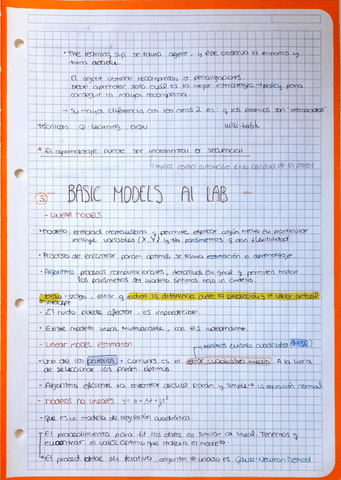 • The learning sys. se llama agent, y este observa el entorno y
toma acción.
El agent obtiene recompensas o penalizaciones
debe aprender solo cuál es la mejor estrategia → policy para
conseguir la mayor recompensa
→ Su mayor diferencia con los otros 2 es: q los premios son "retrasados"
Técnicas Q-learning, DQN
* El aprendizaje puede ser incremental o secuencial
3 - BASIC MODELS AI LAB -
- LINEAR MODELS
• Modelo: entidad matemática q permite explicar algún
incluye variables (X, Y) y tb parámetros q dan flexibilidad
• Proceso de encontrar param. óptimos se llama estimación o aprendizaje.
• Algoritmo: procesos computacionales, iterativos en gral q permiten hallar
los parámetros del modelo óptimos bajo un criterio.
error q indica la diferencia entre la predicción y el valor actual
intercept
• El ruido puede afectar, es impredecible
• Existe modelo lineal multivariable, con + vars independiente.
- Linear model estimation
mínimos cuadrados
• Uno de los criterios + comunes es el error cuadrático medio. A la hora
de seleccionar los param óptimos.
• Algoritmo eficiente va encontrar dichos param y simple → la equación normal
- Modelos no lineales
• que es un modelo de regresión cuadrática.
• El procedimiento para fit los datos es similar al lineal. Tenemos q
encontrar el valor óptimo que índexa el modelo.
• El proced. debe ser iterativo, algoritmo usado es Gauss-Newton Method